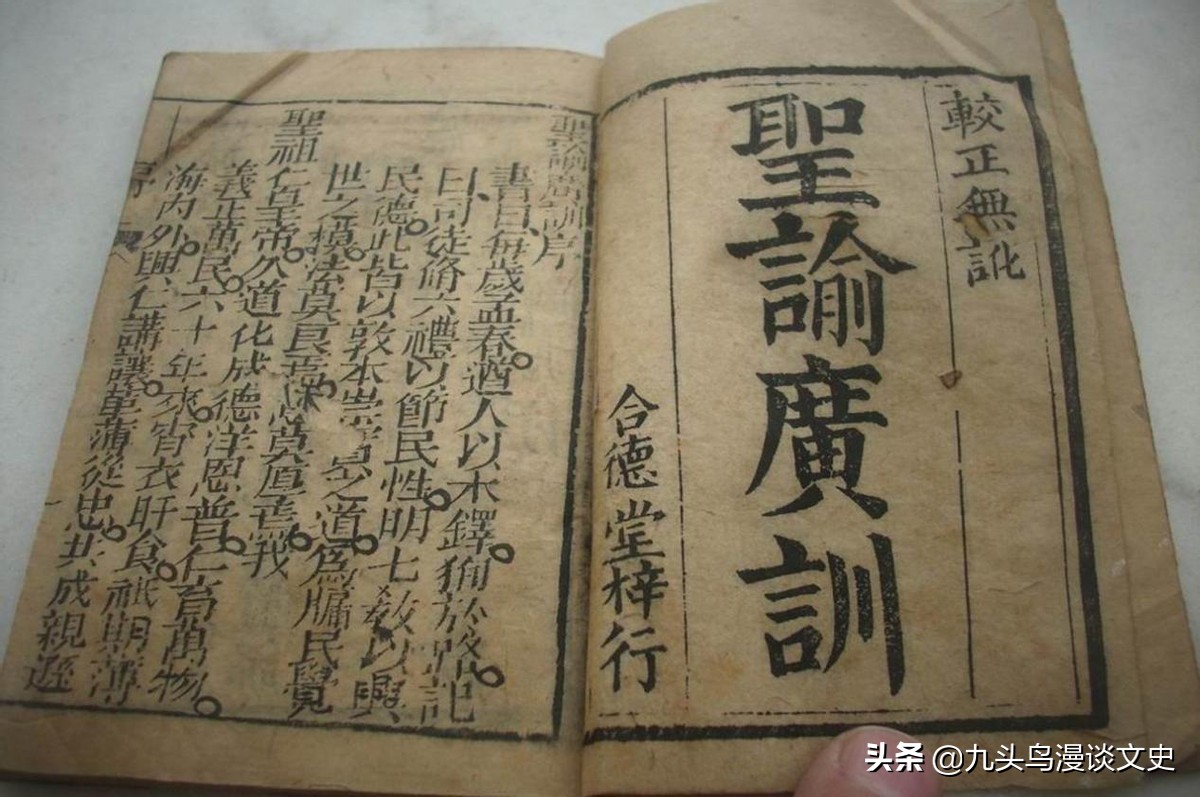 較正無訛
聖諭廣訓
合德堂梓行
聖諭廣訓序
書曰每歲孟春遒人以木鐸徇於路記
曰司徒脩六禮以節民性明七教以興
民德此皆以敦本崇實之道爲牖民覺
世之模法莫良焉意莫厚焉我
聖祖仁皇帝久道化成德洋恩普仁育萬物
義正萬民六十年來宵衣旰食祗期薄
海內外興仁講讓革蒲從忠共成親遜
序
头条 @九头鸟漫谈文史